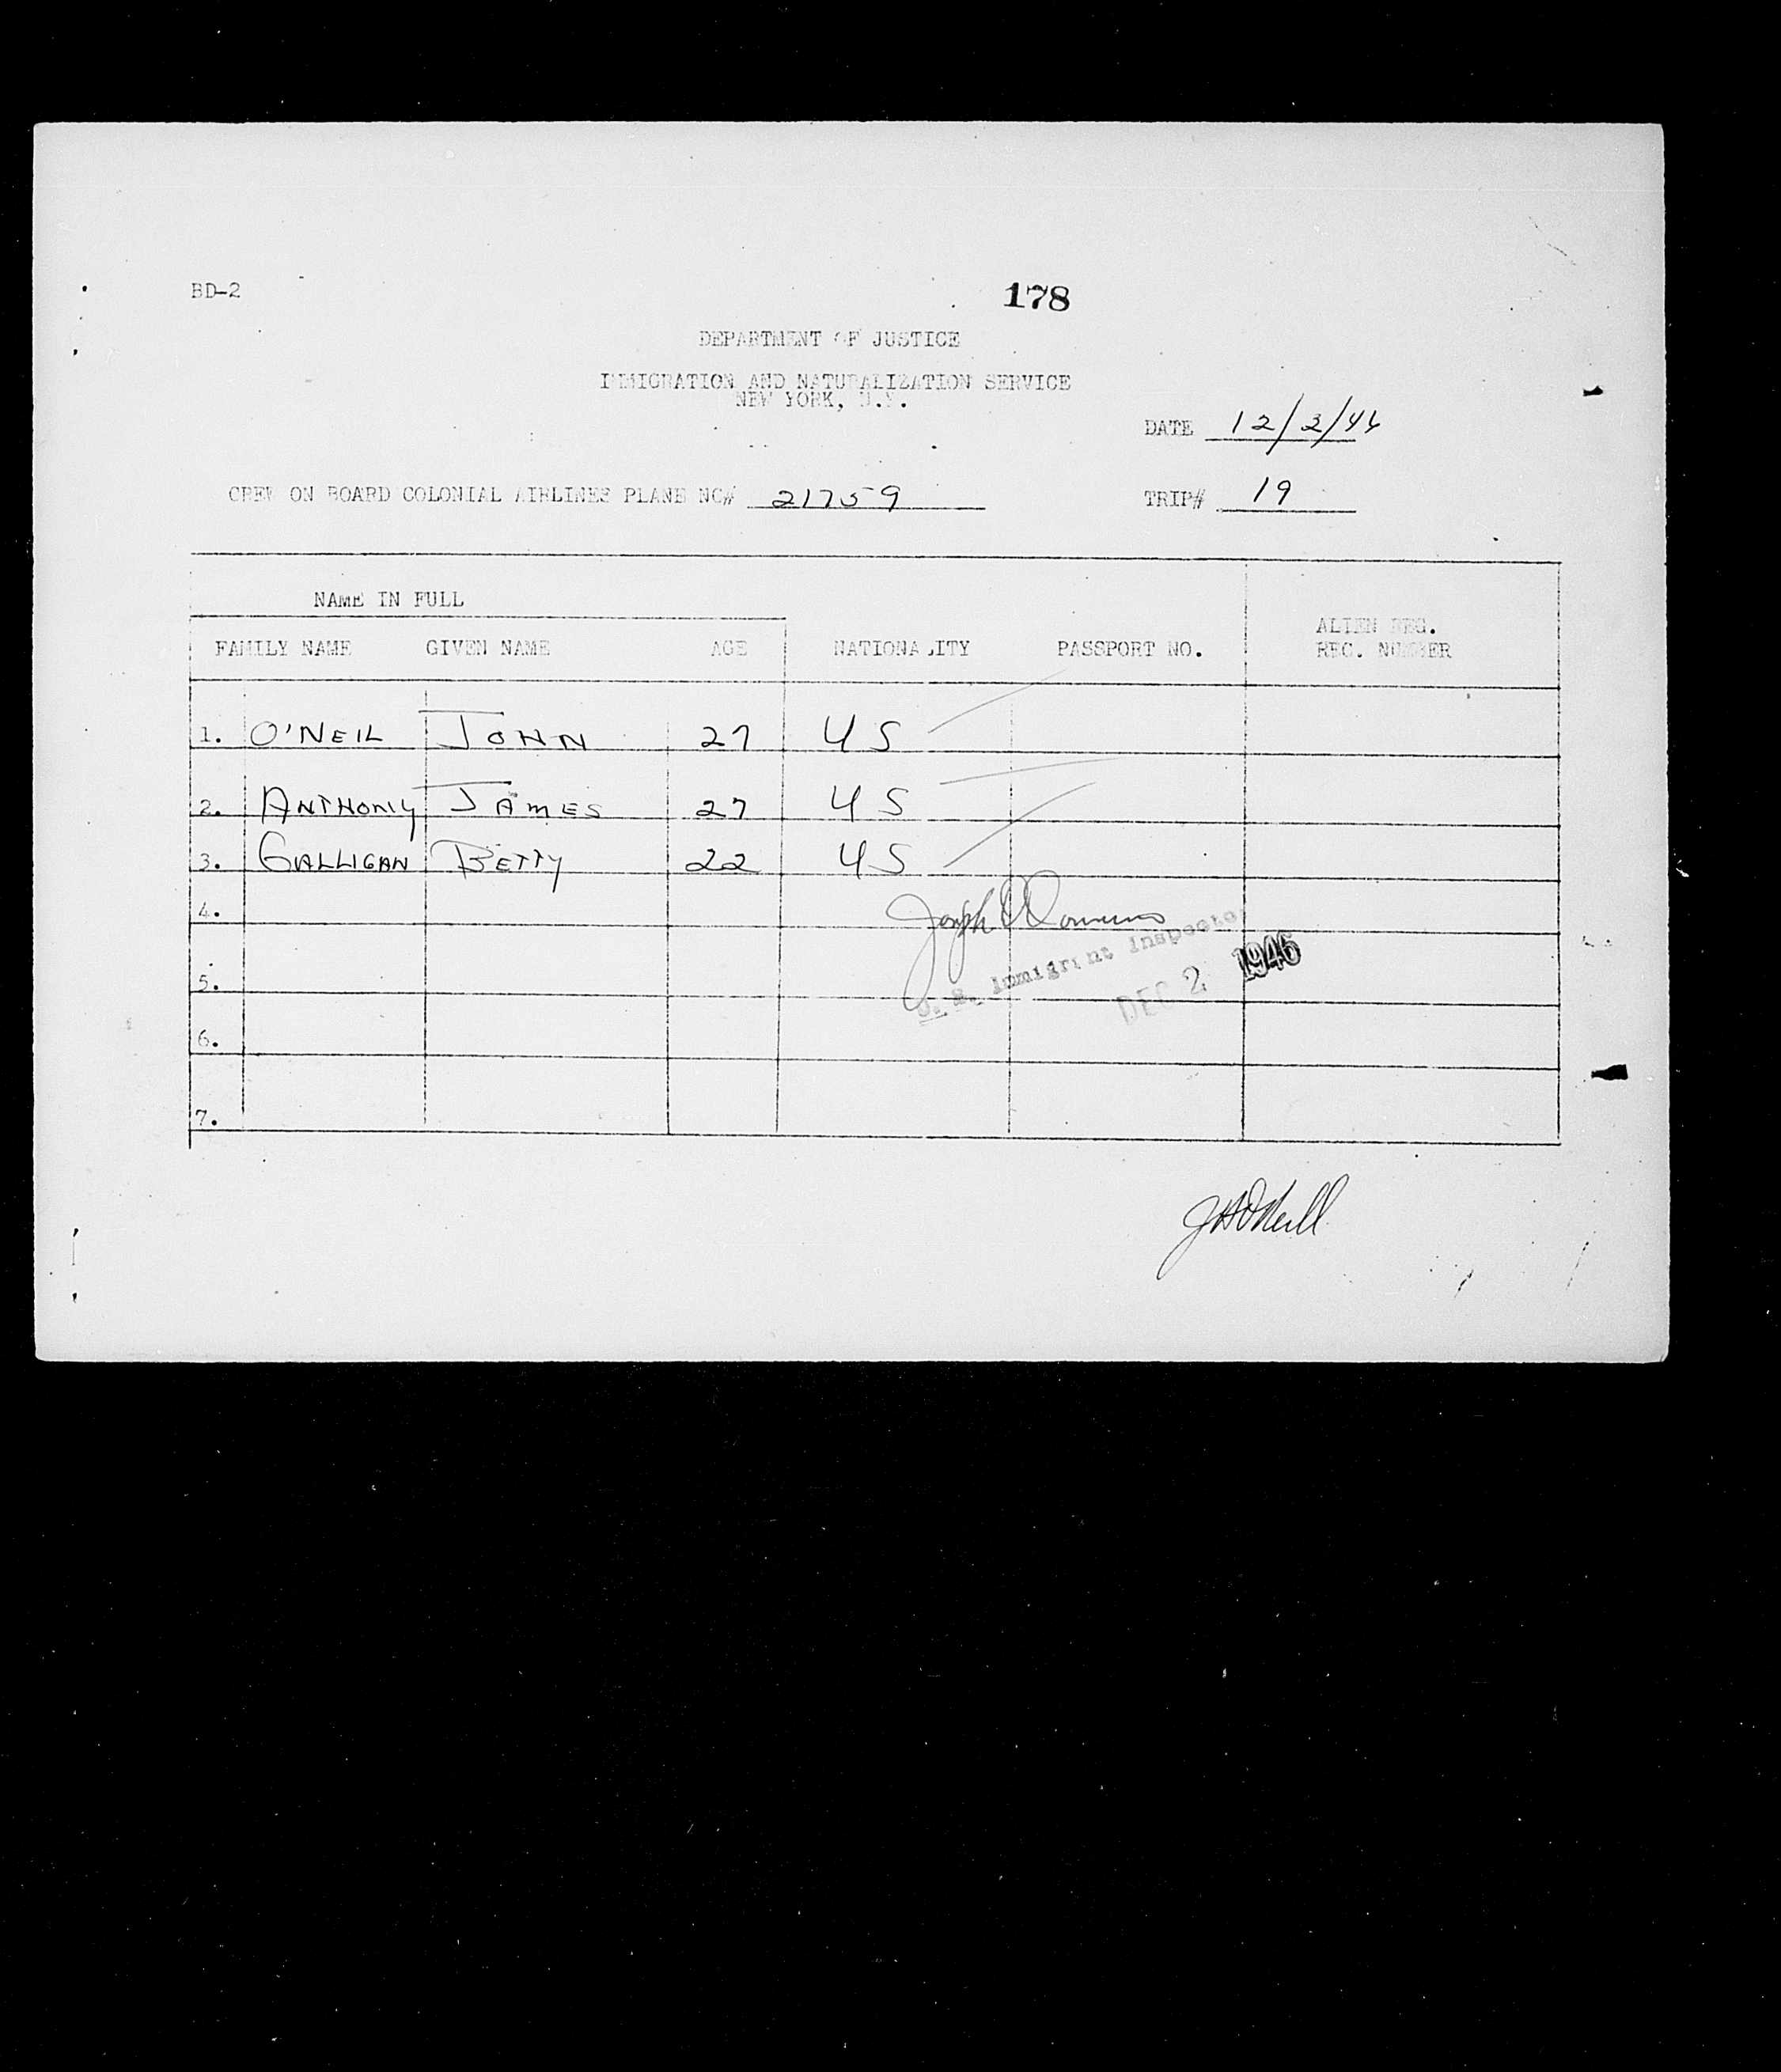 BD-2
178
DEPARTMENT OF JUSTICE
IMMIGRATION AND NATURALIZATION SERVICE
NEW YORK, N.Y.
DATE 12/2/46
CREW ON BOARD COLONIAL AIRLINES PLANE NC# 21759 TRIP# 19
NAME IN FULL
FAMILY NAME GIVEN NAME AGE NATIONALITY PASSPORT NO. ALIEN REG. REC. NUMBER
1. O'NEIL JOHN 27 US
2. ANTHONY JAMES 27 US
3. GALLIGAN BETTY 22 US
4. Joseph
U. S. Immigrant Inspector
5. DEC 2 1946
6.
7.
J H O'Neill